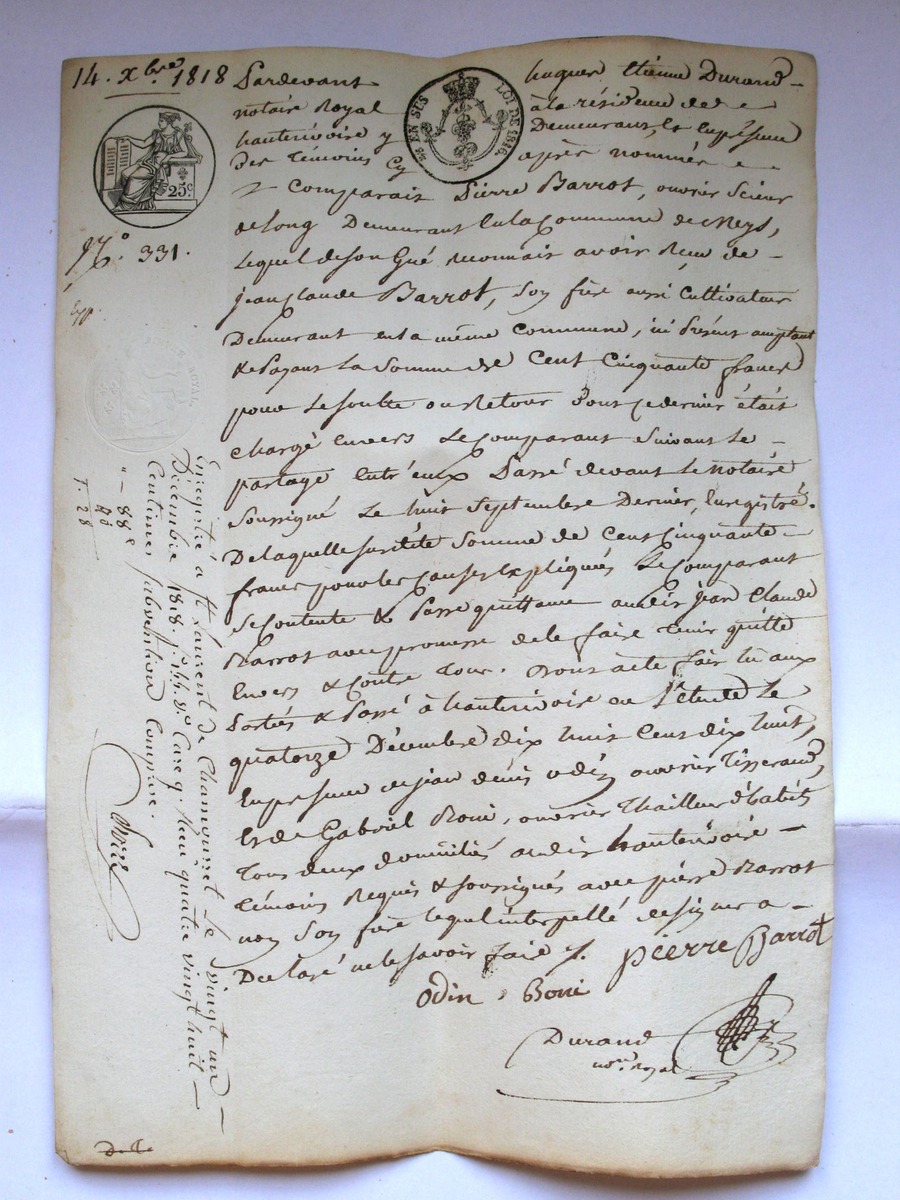 14. xbre 1818
Pardevant hugues étienne Durand
notaire Royal à la résidence de
hauterivoire y Demeurant, & en présence
Des témoins Cy après nommés
Comparait Pierre Barrot, ouvrier Scieur
de long Demeurant en la Commune de Meys,
Lequel de son Gué reconnait avoir Reçu de
jean Claude Barrot, Son frère aussi Cultivateur
Demeurant en la même Commune, ici Présent acceptant
& Payant La Somme de Cent Cinquante francs
pour La Soulte ou Retour Dont Ce dernier était
Chargé Envers Le Comparant Suivant Le
partage Entr'eux Passé devant le Notaire
Soussigné Le huit Septembre Dernier, Enregistré.
De laquelle Susditte Somme de Cent Cinquante
francs pour les Causes Expliqués Le Comparant
Se Contente & Passe quittance audit jean Claude
Barrot avec promesse de le faire tenir quitte
Envers & Contre tous. Dont acte fait lu aux
Parties & Passé à hauterivoire en l'étude Le
quatorze Décembre Dix huit Cent dix huit,
En présence de jean denis odin ouvrier Tisserand,
Et de Gabriel Boni, ouvrier Thailleur d'habits
tous deux domiciliés audit hauterivoire
témoins Requis & Soussignés avec pierre Barrot
non Son frère lequel interpellé de signer a
Declaré ne le savoir faire
pierre Barrot
Odin Boni
Durand
nore Royal
S EN SES LOI DE 1816
25c
No. 331.
Exp.
ROYAL
Enregistré à St Laurent de Chamousset Le vingt un
Décembre 1818. fo. 44 Vo. Case 9. Reçu quatre vingt huit
Centimes subvention Comprise.
" — 88c
T. 28